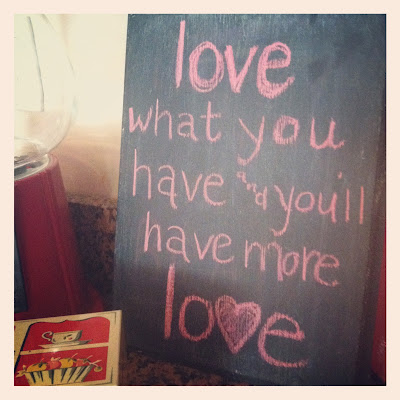 love
what you
have and you'll
have more
love